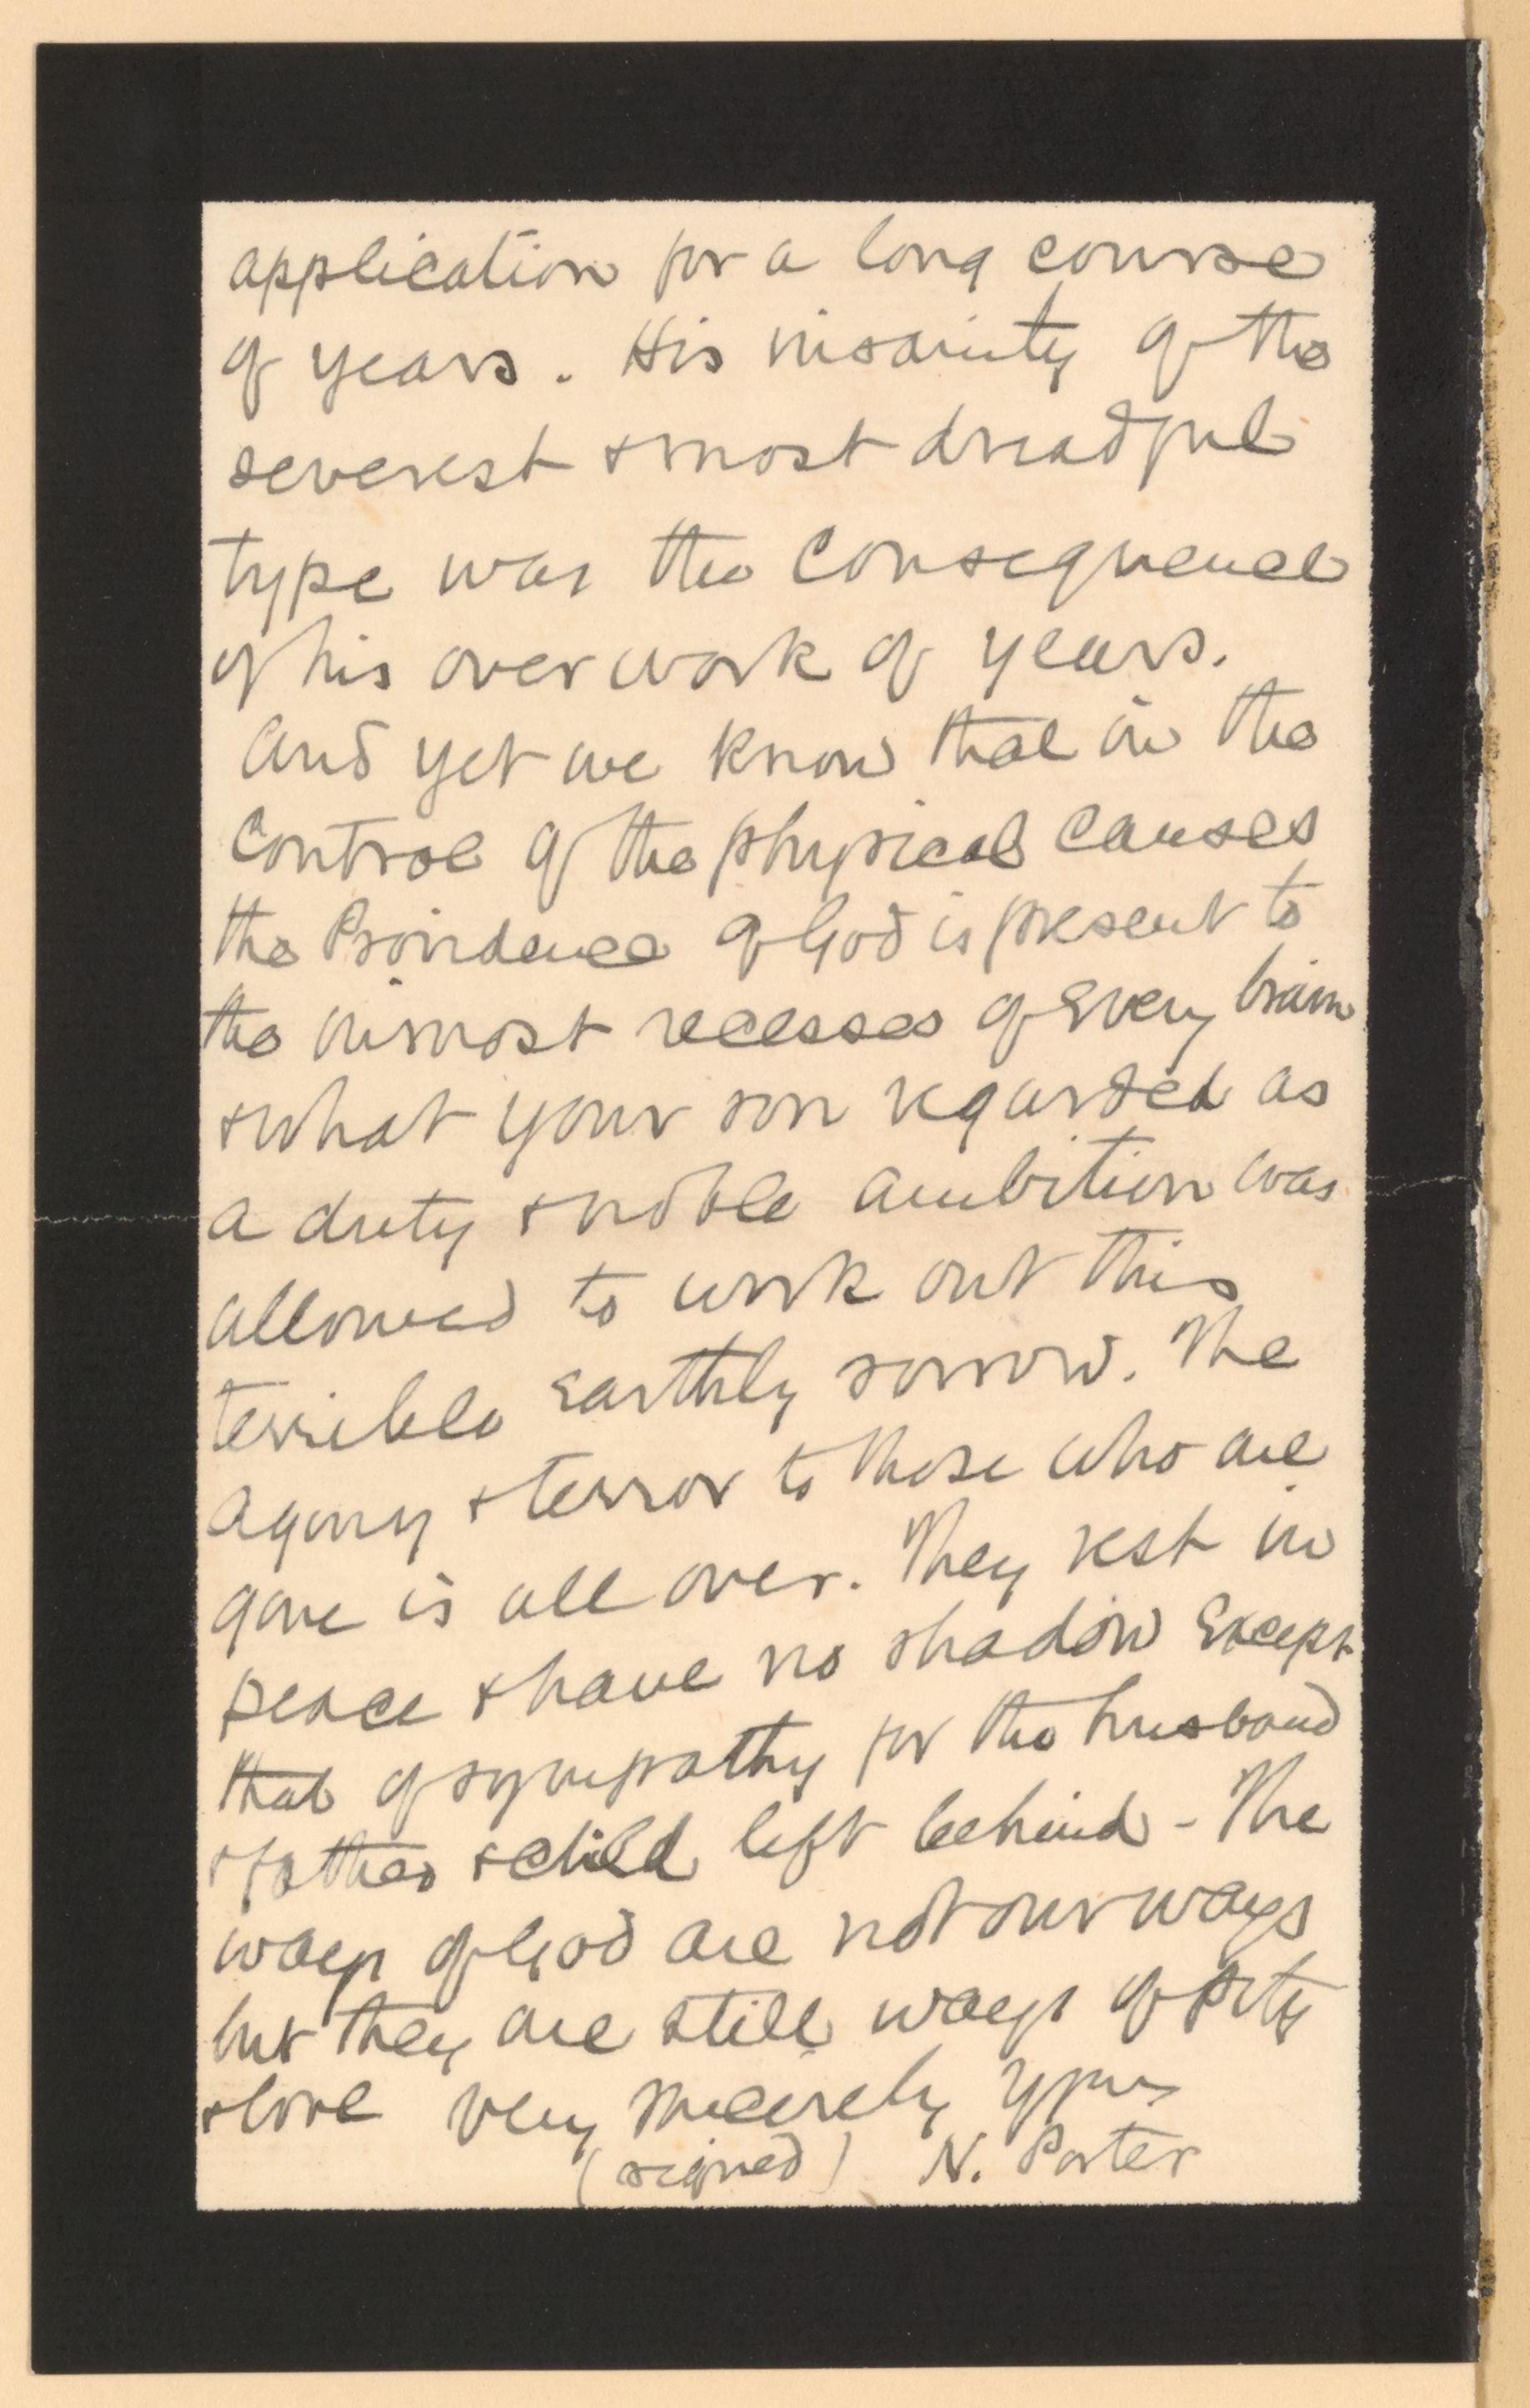 application for a long course
of years. His insanity of the
severest & most dreadful
type was the consequence
of his over work of years.
And yet we know that in the
control of the physical causes
the Providence of God is present to
the inmost recesses of every brain
& what your son regarded as
a duty & noble ambition was
allowed to work out this
terrible earthly sorrow. The
agony & terror to those who are
gone is all over. They rest in
peace & have no shadow except
that of sympathy for the husband
& father & child left behind - The
ways of God are not our ways
but they are still ways of pity
& love Very sincerely yours
(signed) N. Porter